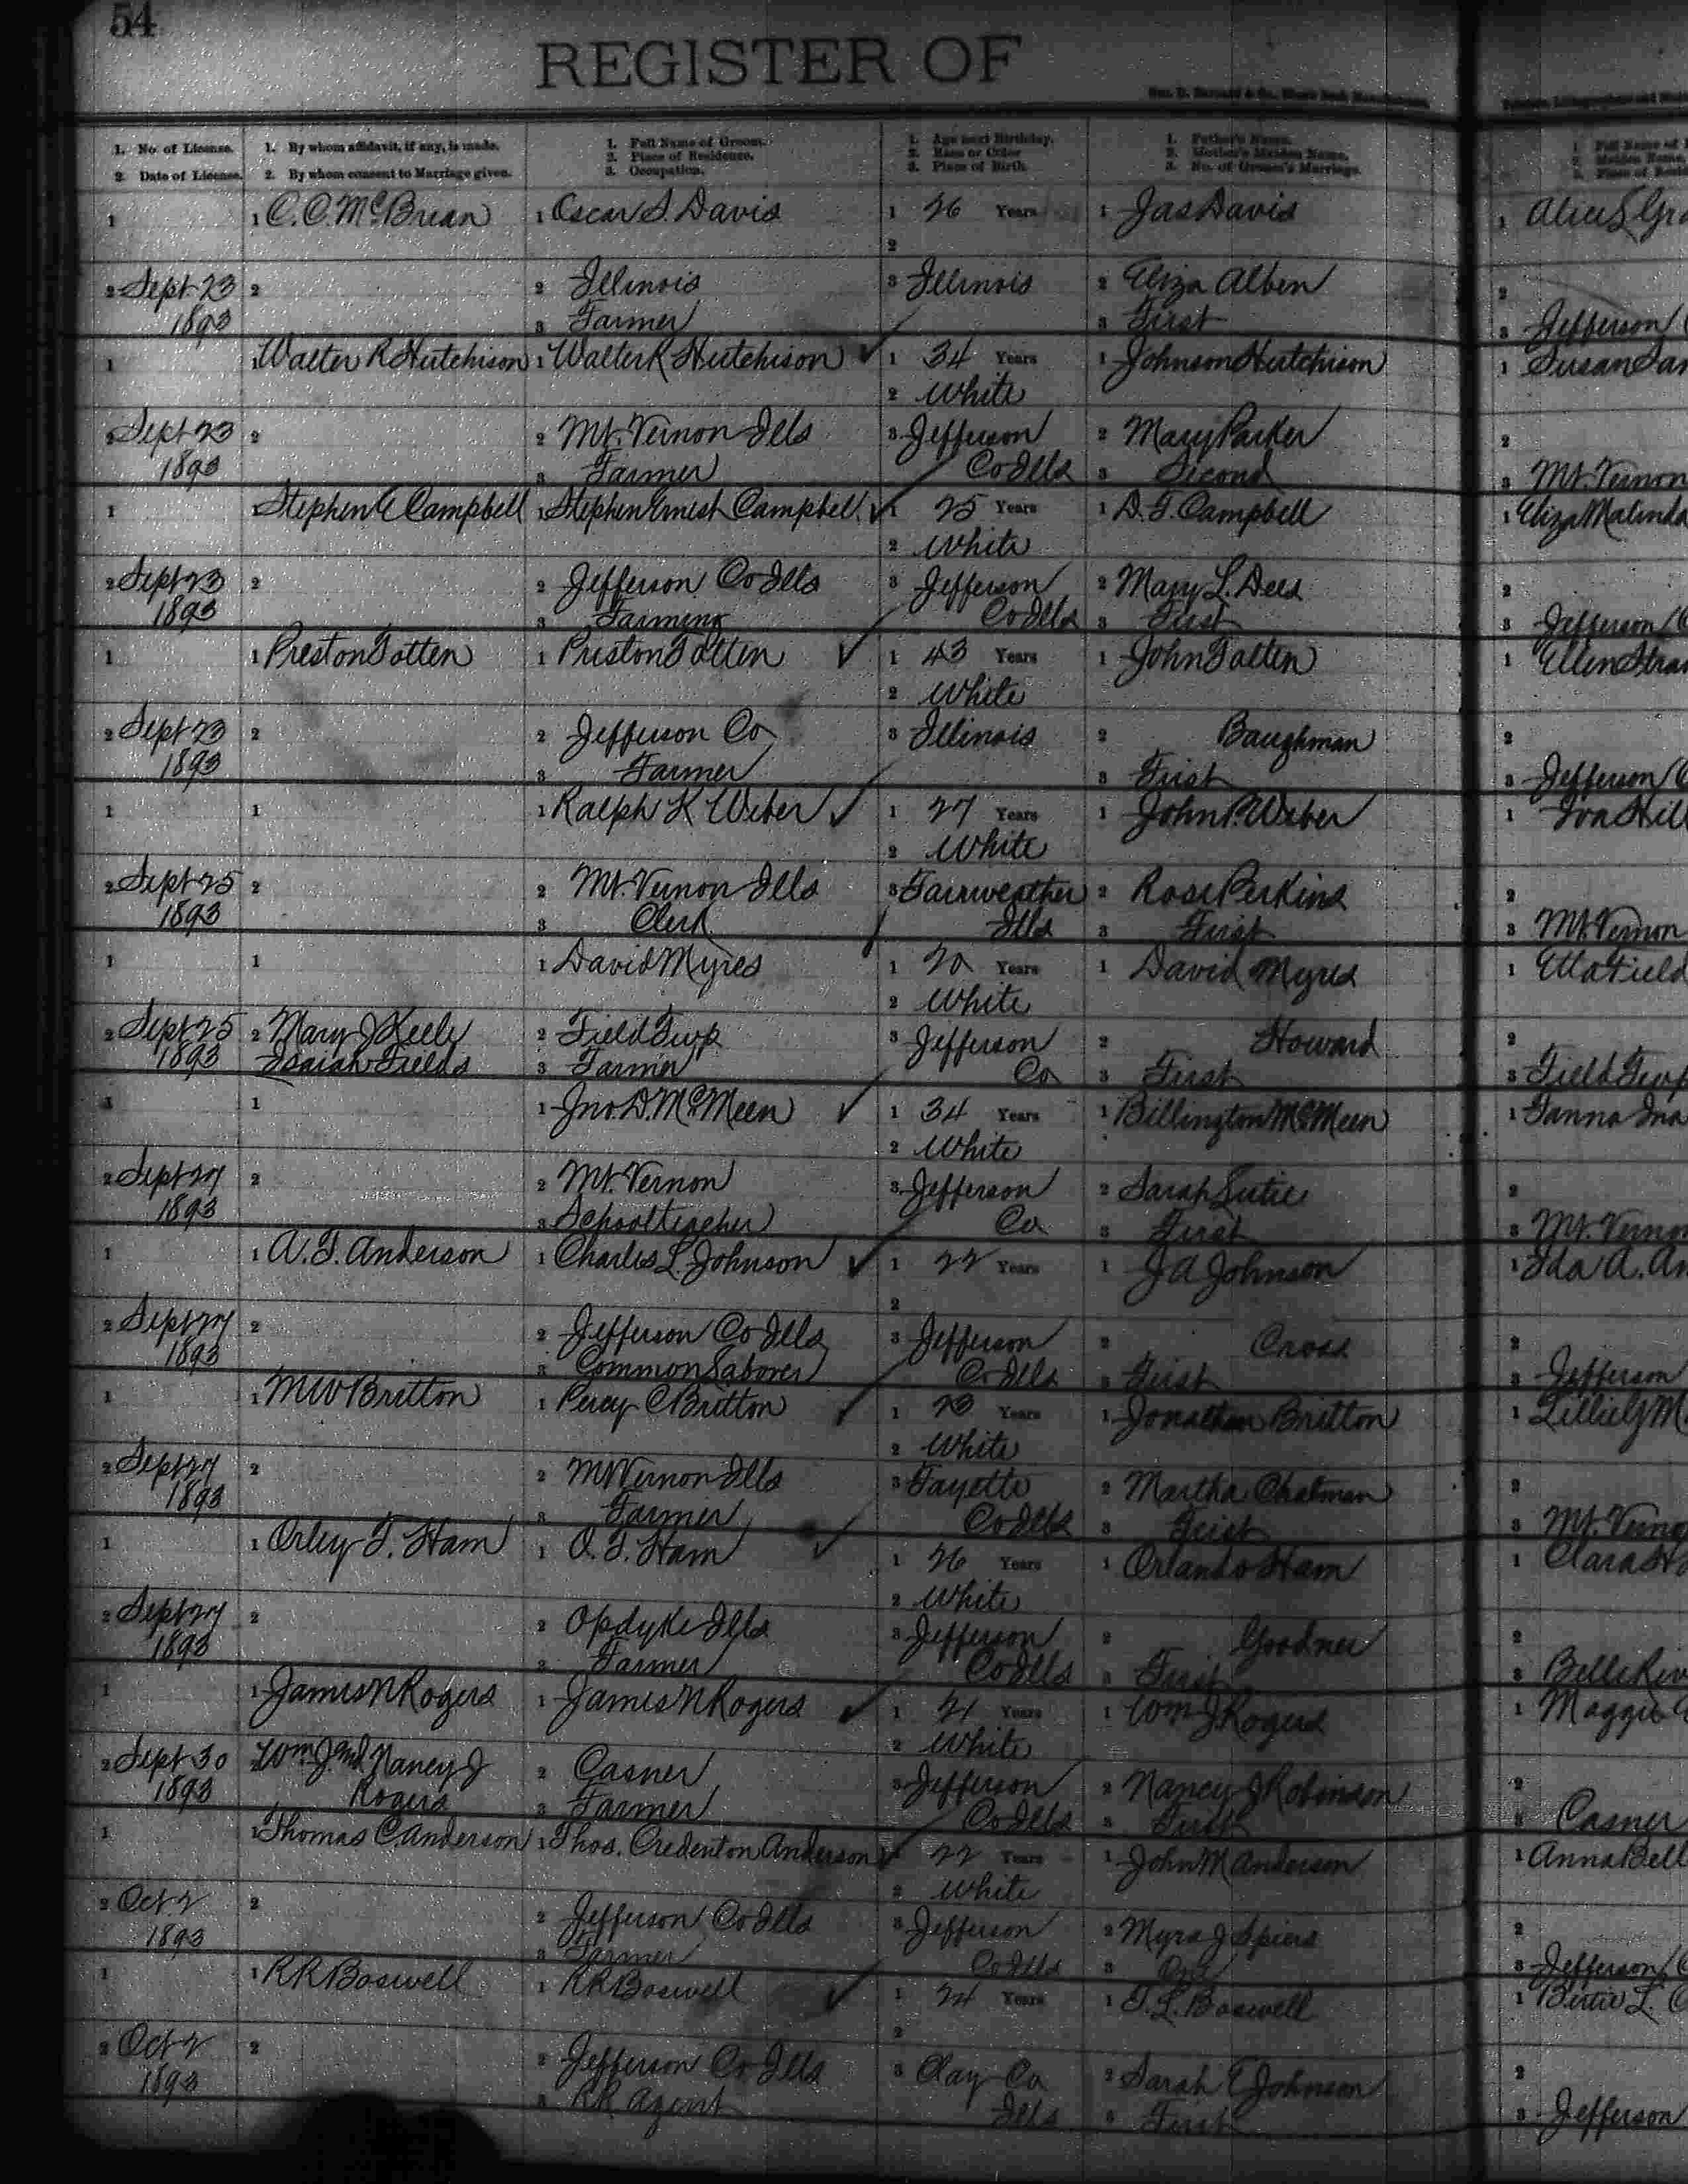 54
REGISTER OF
1. No. of License.
2. Date of License.
1. By whom affidavit, if any, is made.
2. By whom consent to Marriage given.
1. Full Name of Groom.
2. Place of Residence.
3. Occupation.
1. Age next Birthday.
2. Race or Color
3. Place of Birth.
1. Father's Name.
2. Mother's Maiden Name.
3. No. of Groom's Marriage.
1 1 C. C. McBrian 1 Oscar S. Davis 1 26 Years 1 Jas Davis 1 Alice
2
2 Sept 23 2 2 Illinois 3 Illinois 2 Eliza Alben 2
1893 3 Farmer 3 First 3 Jefferson
1 1 Walter R Hutchison 1 Walter R Hutchison 1 34 Years 1 Johnson Hutchison 1 Susan
2 White
2 Sept 23 2 2 Mt. Vernon Ills 3 Jefferson 2 Mary Parker 2
1893 3 Farmer Co Ills 3 Second 3 Mt. Vernon
1 1 Stephen E Campbell 1 Stephen Ernest Campbell 1 25 Years 1 D. T. Campbell 1 Eliza Malinda
2 White
2 Sept 23 2 2 Jefferson Co Ills 3 Jefferson 2 Mary L. Dees 2
1893 3 Farming Co Ills 3 First 3 Jefferson
1 1 Preston Totten 1 Preston Totten 1 43 Years 1 John Totten 1 Ellen
2 White
2 Sept 23 2 2 Jefferson Co 3 Illinois 2 Baughman 2
1893 3 Farmer 3 First 3 Jefferson
1 1 1 Ralph K Weber 1 27 Years 1 John P. Weber 1
2 White
2 Sept 25 2 2 Mt. Vernon Ills 3 Fairweather 2 Rose Perkins 2
1893 3 Clerk Ills 3 First 3 Mt. Vernon
1 1 1 David Myres 1 20 Years 1 David Myres 1 Etta Field
2 White
2 Sept 25 2 Mary J Keele 2 Field Twp 3 Jefferson 2 Howard 2
1893 Isaiah Fields 3 Farmer Co 3 First 3 Field Twp
1 1 1 Jno. D. McMeen 1 34 Years 1 Billington McMeen 1
2 White
2 Sept 27 2 2 Mt. Vernon 3 Jefferson 2 Sarah 2
1893 3 School teacher Co 3 First 3 Mt. Vernon
1 1 A. T. Anderson 1 Charles L. Johnson 1 22 Years 1 J A Johnson 1 Ida A.
2
2 Sept 27 2 2 Jefferson Co Ills 3 Jefferson 2 Cross 2
1893 3 Common Laborer Co Ills 3 First 3 Jefferson
1 1 M W Britton 1 Percy C Britton 1 23 Years 1 Jonathan Britton 1
2 White
2 Sept 27 2 2 Mt Vernon Ills 3 Fayette 2 Martha Chatman 2
1893 3 Farmer Co Ills 3 First 3 Mt. Vernon
1 1 Orley T. Ham 1 O. T. Ham 1 26 Years 1 Orlando Ham 1 Clara
2 White
2 Sept 27 2 2 Opdyke Ills 3 Jefferson 2 Goodner 2
1893 3 Farmer Co Ills 3 First 3 Belle
1 1 James N Rogers 1 James N Rogers 1 21 Years 1 Wm J Rogers 1 Maggie
2 White
2 Sept 30 2 Wm J. and Nancy J 2 Casner 3 Jefferson 2 Nancy J Robinson 2
1893 Rogers 3 Farmer Co Ills 3 First 3 Casner
1 1 Thomas C. Anderson 1 Thos. Credenton Anderson 1 22 Years 1 John M Anderson 1 Anna Bell
2 White
2 Oct 2 2 2 Jefferson Co Ills 3 Jefferson 2 Myra J Spiers 2
1893 3 Farmer Co Ills 3 3 Jefferson
1 1 R R Boswell 1 R R Boswell 1 24 Years 1 T. L. Boswell 1 L.
2
2 Oct 2 2 2 Jefferson Co Ills 3 Clay Co 2 Sarah E Johnson 2
1893 3 RR Agent Ills 3 First 3 Jefferson